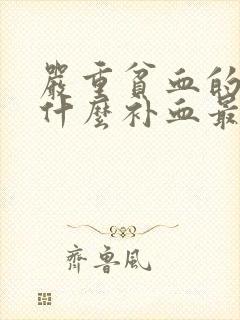 嚴重貧血的
什麼补血最
齊魯風